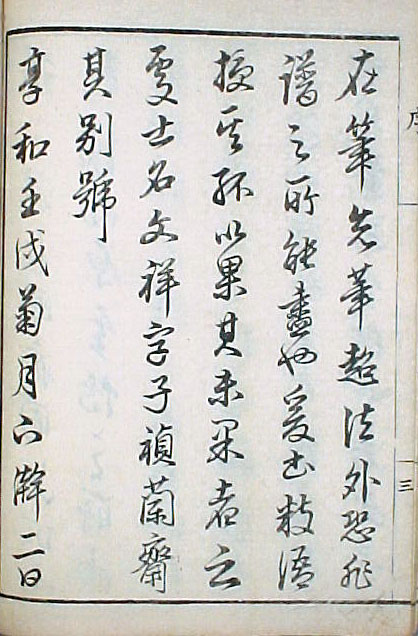 在筆先筆超法外恐非
譜之所能盡也爰書数語
授其孤以果其未果者云
處士名文祥字子禎蘭齋
其別號
享和壬戌菊月下澣二日
序
三